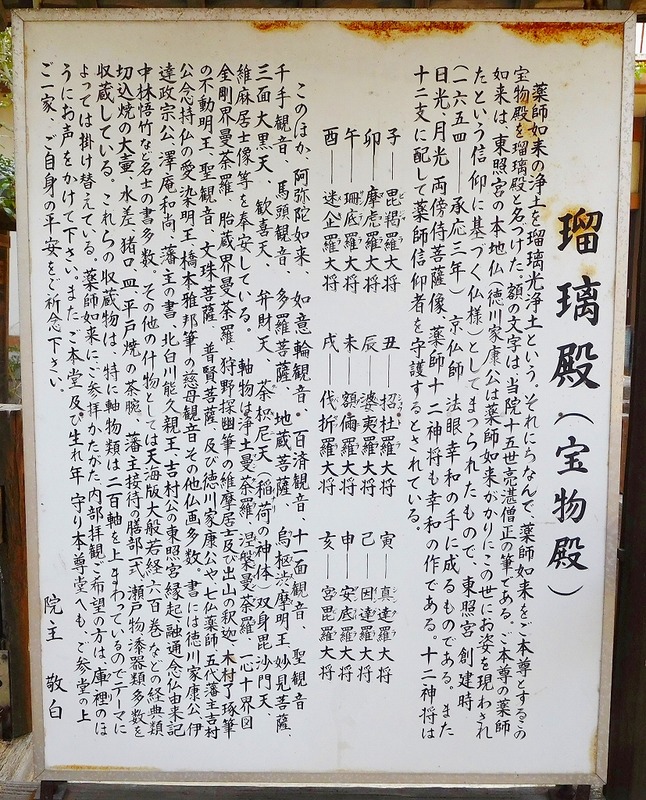 瑠璃殿(宝物殿)
薬師如来の浄土を瑠璃光浄土という。それにちなんで、薬師如来をご本尊とするこの
宝物殿を瑠璃殿と名つけた。額の文字は、当院十五世亮湛僧正の筆である。ご本尊の薬師
如来は、東照宮の本地仏(徳川家康公は薬師如来がかりにこの世にお姿を現わされ
たという信仰に基づく仏様)としてまつられたもので、東照宮創建時
(一六五四――承応三年)京仏師 法眼幸和の手に成るものである。また
日光、月光両傍侍菩薩像、薬師十二神将も幸和の作である。十二神将は
十二支に配して薬師信仰者を守護するとされている。
子――毘羯羅大将 丑――招杜羅大将 寅――真達羅大将
卯――摩虎羅大将 辰――婆夷羅大将 巳――因達羅大将
午――珊底羅大将 未――額儞羅大将 申――安底羅大将
酉――迷企羅大将 戌――伐折羅大将 亥――宮毘羅大将
このほか、阿弥陀如来、如意輪観音、百済観音、十一面観音、聖観音、
千手観音、馬頭観音、多羅菩薩、地蔵菩薩、烏枢渋摩明王、妙見菩薩、
三面大黒天、歓喜天、弁財天、荼枳尼天(稲荷の神体)双身毘沙門天、
維麻居士像等を奉安している。軸物は浄土曼荼羅、涅槃曼荼羅、一心十界図
金剛界曼荼羅、胎蔵界曼荼羅、狩野探幽筆の維摩居士及び出山の釈迦、木村了琢筆
の不動明王、聖観音、文珠菩薩、普賢菩薩、及び徳川家康公や七仏薬師、五代藩主吉村
公念持仏の愛染明王、橋本雅邦筆の慈母観音その他仏画多数。書には徳川家康公、伊
達政宗公、澤庵和尚、藩主の書、北白川能久親王、吉村公の東照宮縁起、融通念仏由来記
中林悟竹など名士の書多数。その他の什物としては天海版大般若経六百巻などの経典類
切込焼の大壷、水差、猪口、皿、平戸焼の茶腕、藩主接待の膳部一式、瀬戸物漆器類多数を
収蔵している。これらの収蔵物は、特に軸物類は二百軸を上まわっているのでテーマに
よっては掛け替えている。薬師如来にご参拝かたがた内部拝観ご希望の方は、庫裡のほ
うにお声をかけて下さい。また、ご本堂及び生れ年守り本尊堂へも、ご参堂の上
ご一家、ご自身の平安をご祈念下さい。
院主 敬白